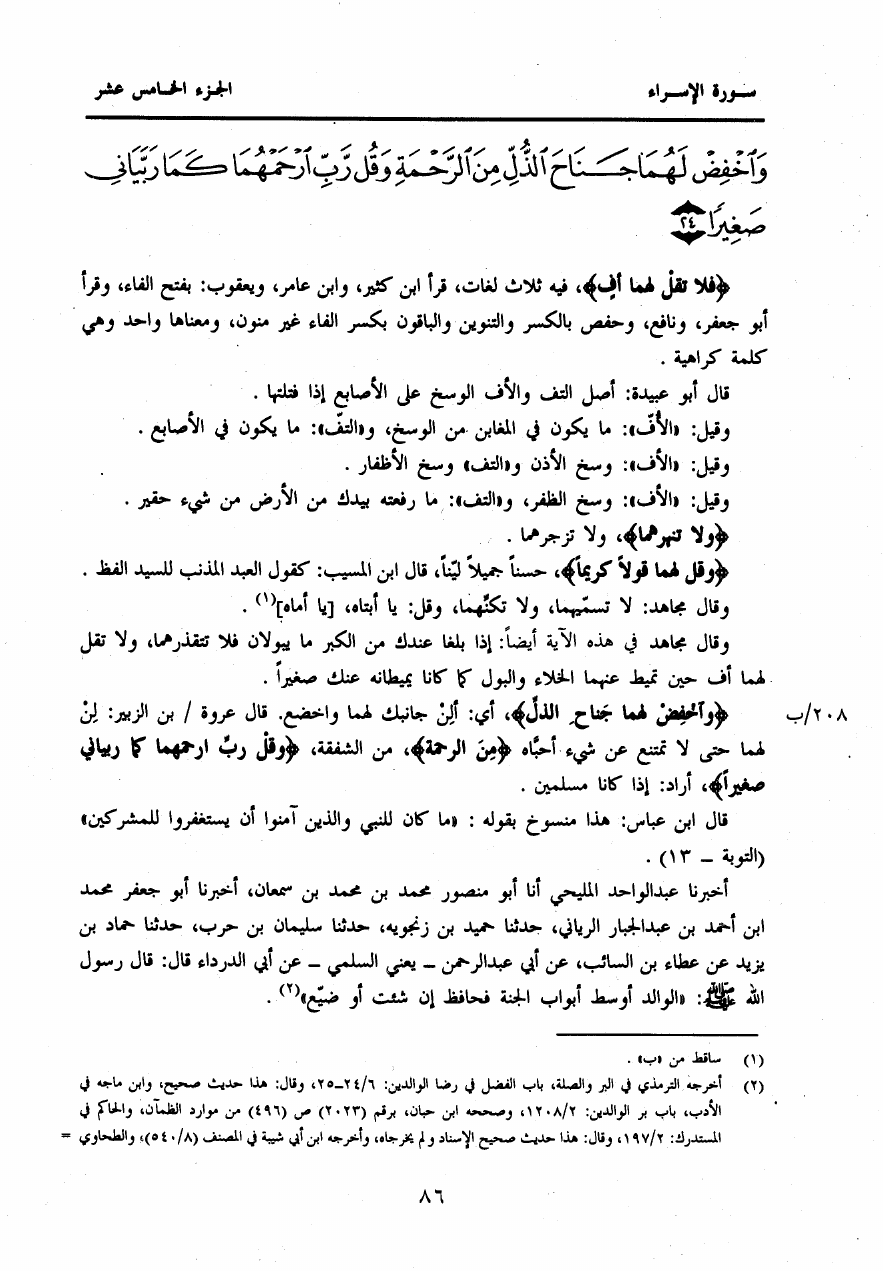 سورة الإسراء
الجزء الخامس عشر
وَٱخْفِضْ لَهُمَا جَنَاحَ ٱلذُّلِّ مِنَ ٱلرَّحْمَةِ وَقُل رَّبِّ ٱرْحَمْهُمَا كَمَا رَبَّيَانِي
صَغِيرًا ٢٤
﴿فلا تقلْ لهما أفٍ﴾، فيه ثلاث لغات، قرأ ابن كثير، وابن عامر، ويعقوب: بفتح الفاء، وقرأ
أبو جعفر، ونافع، وحفص بالكسر والتنوين والباقون بكسر الفاء غير منون، ومعناها واحد وهي
كلمة كراهية .
قال أبو عبيدة: أصل التف والأف الوسخ على الأصابع إذا فتلتها .
وقيل: «الأُفّ»: ما يكون في المغابن من الوسخ، و«التفّ»: ما يكون في الأصابع .
وقيل: «الأف»: وسخ الأذن و«التف» وسخ الأظفار .
وقيل: «الأف»: وسخ الظفر، و«التف»: ما رفعته بيدك من الأرض من شيء حقير .
﴿ولا تنهرهما﴾، ولا تزجرهما .
﴿وقل لهما قولاً كريماً﴾، حسناً جميلاً ليّناً، قال ابن المسيب: كقول العبد المذنب للسيد الفظ .
وقال مجاهد: لا تسمّيهما، ولا تكنّهما، وقل: يا أبتاه، [يا أماه](١) .
وقال مجاهد في هذه الآية أيضاً: إذا بلغا عندك من الكبر ما يبولان فلا تتقذرهما، ولا تقل
لهما أف حين تميط عنهما الخلاء والبول كما كانا يميطانه عنك صغيراً .
﴿وآخفِضْ لهما جَناحِ الذلِّ﴾، أي: أَلِنْ جانبك لهما واخضع. قال عروة / بن الزبير: لِنْ
٢٠٨/ب
لهما حتى لا تمتنع عن شيء أحبَّاه ﴿مِنَ الرحمة﴾، من الشفقة، ﴿وقلْ ربِّ ارحمهما كما ربياني
صغيراً﴾، أراد: إذا كانا مسلمين .
قال ابن عباس: هذا منسوخ بقوله : «ما كان للنبي والذين آمنوا أن يستغفروا للمشركين»
(التوبة – ١٣) .
أخبرنا عبدالواحد المليحي أنا أبو منصور محمد بن محمد بن سمعان، أخبرنا أبو جعفر محمد
ابن أحمد بن عبدالجبار الرياني، حدثنا حميد بن زنجويه، حدثنا سليمان بن حرب، حدثنا حماد بن
يزيد عن عطاء بن السائب، عن أبي عبدالرحمن – يعني السلمي – عن أبي الدرداء قال: قال رسول
الله ﷺ: «الوالد أوسط أبواب الجنة فحافظ إن شئت أو ضيّع»(٢) .
(١) ساقط من «ب» .
(٢) أخرجه الترمذي في البر والصلة، باب الفضل في رضا الوالدين: ٢٤/٦–٢٥، وقال: هذا حديث صحيح، وابن ماجه في
الأدب، باب بر الوالدين: ١٢٠٨/٢، وصححه ابن حبان، برقم (٢٠٢٣) ص (٤٩٦) من موارد الظمآن، والحاكم في
المستدرك: ١٩٧/٢، وقال: هذا حديث صحيح الإسناد ولم يخرجاه، وأخرجه ابن أبي شيبة في المصنف (٥٤٠/٨)، والطحاوي =
٨٦